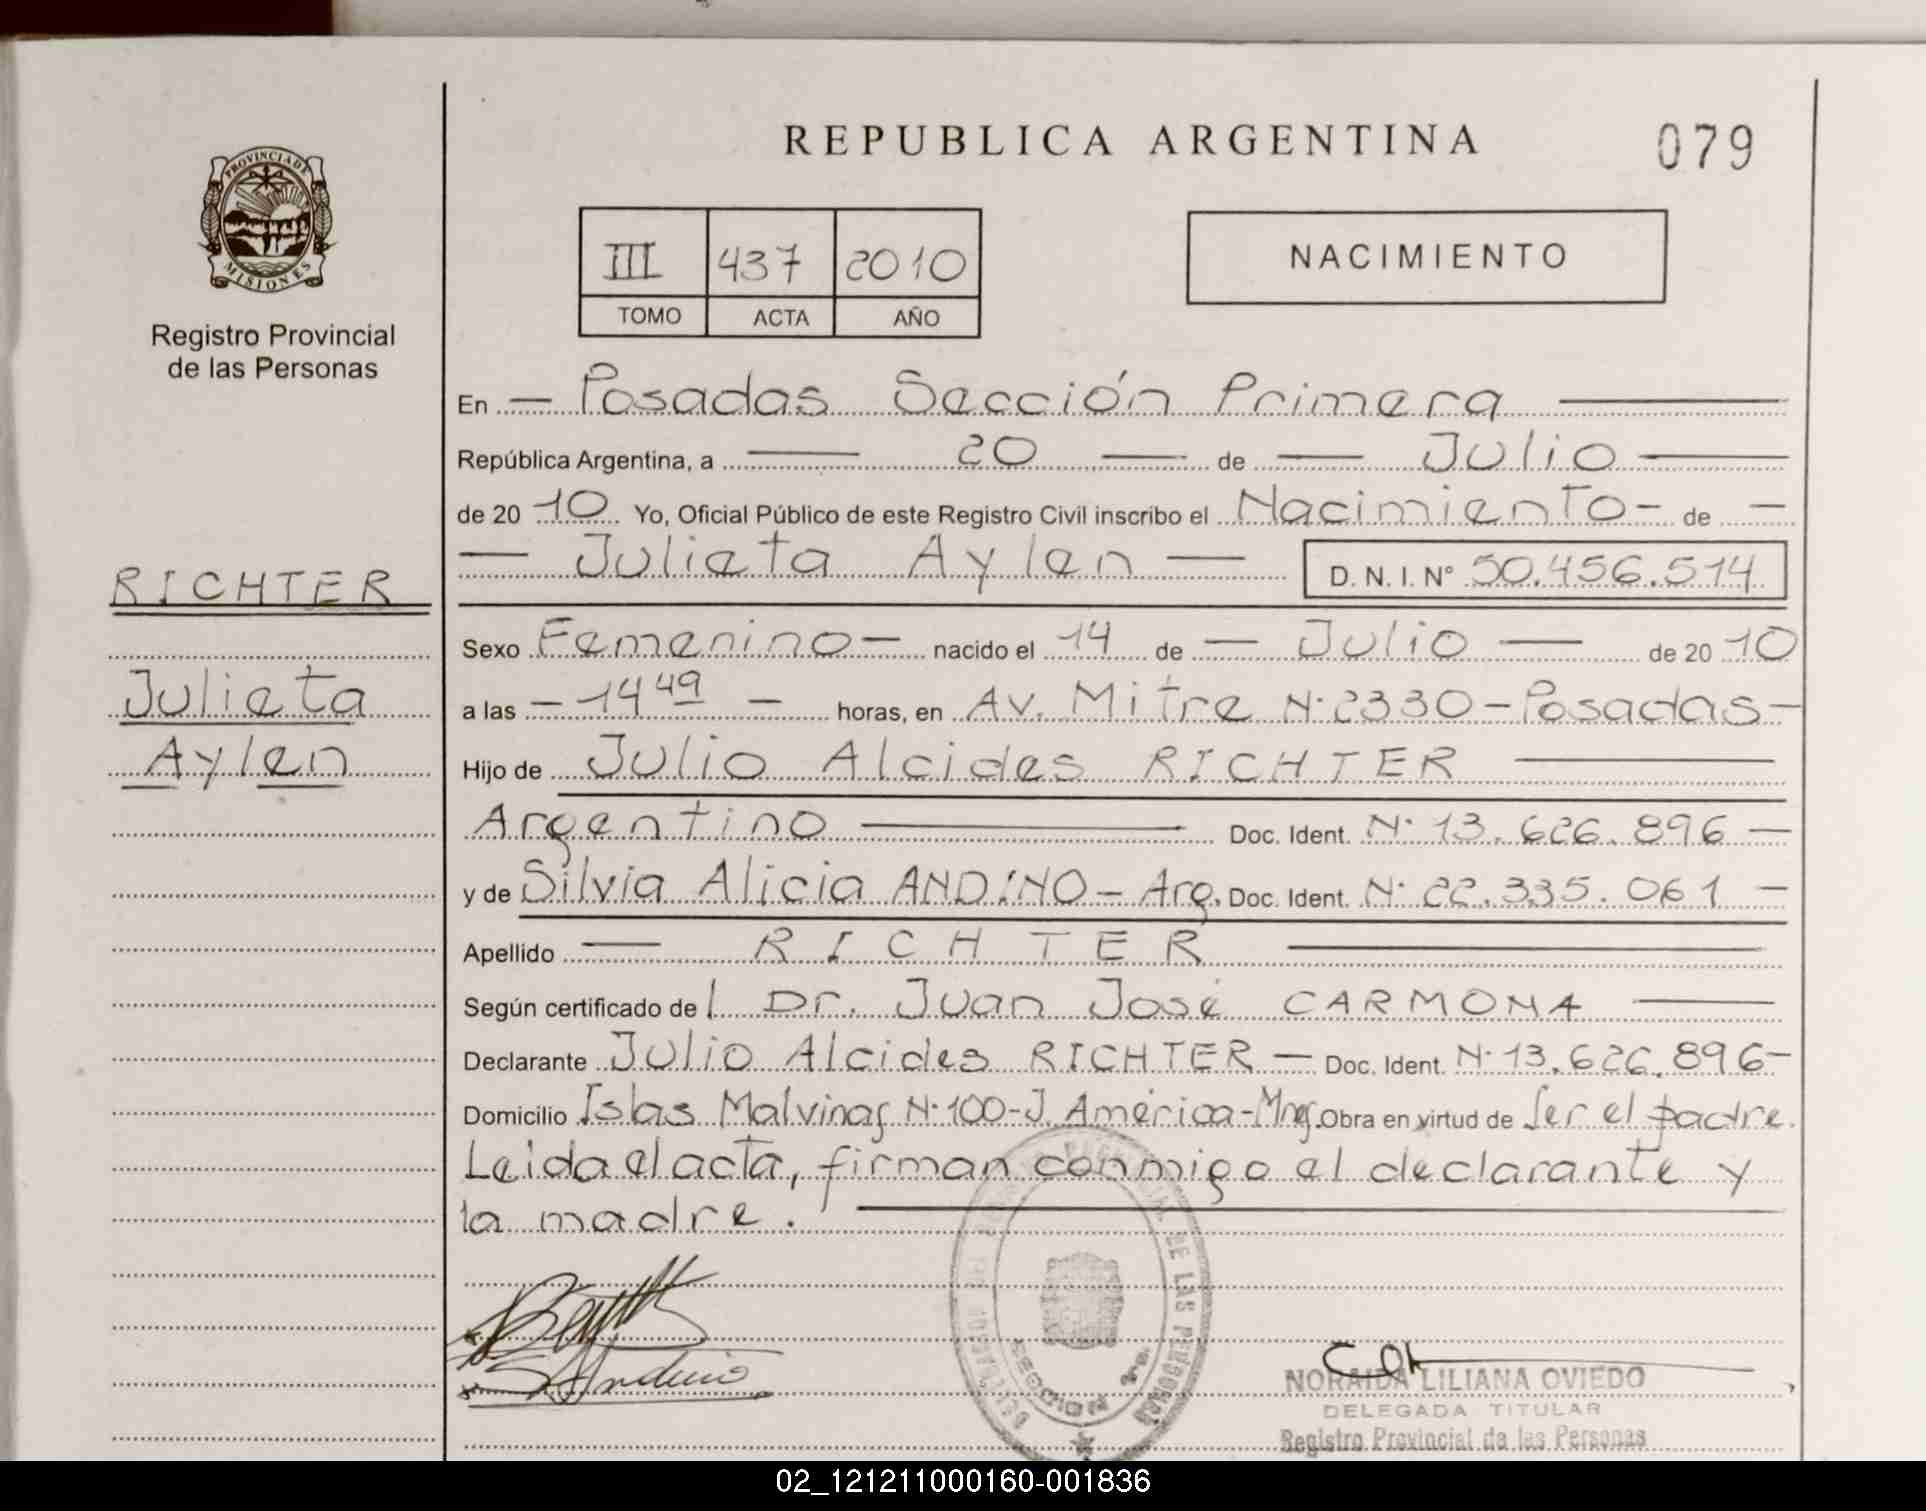 REPUBLICA ARGENTINA
079
PROVINCIA DE
MISIONES
Registro Provincial
de las Personas
III 437 2010
TOMO ACTA AÑO
NACIMIENTO
En — Posadas Sección Primera —
República Argentina, a — 20 — de — Julio —
de 2010 Yo, Oficial Público de este Registro Civil inscribo el Nacimiento - de —
— Julieta Aylen — D. N. I. Nº 50.456.514
RICHTER
Julieta
Aylen
Sexo Femenino — nacido el 14 de — Julio — de 2010
a las — 14 49 — horas, en Av. Mitre N· 2330 - Posadas -
Hijo de Julio Alcides RICHTER —
Argentino — Doc. Ident. N· 13.626.896 —
y de Silvia Alicia ANDINO - Arg. Doc. Ident. N· 22.335.061 —
Apellido — RICHTER —
Según certificado de l Dr. Juan José CARMONA —
Declarante Julio Alcides RICHTER — Doc. Ident. N· 13.626.896 -
Domicilio Islas Malvinas N· 100 - J. América - Mnes. Obra en virtud de Ser el padre.
Leida el acta, firman conmigo el declarante y
la madre. —
DE LAS PERSONAS
SECCION 1a.
S Andino
NORAIDA LILIANA OVIEDO
DELEGADA TITULAR
Registro Provincial de las Personas
02_121211000160-001836